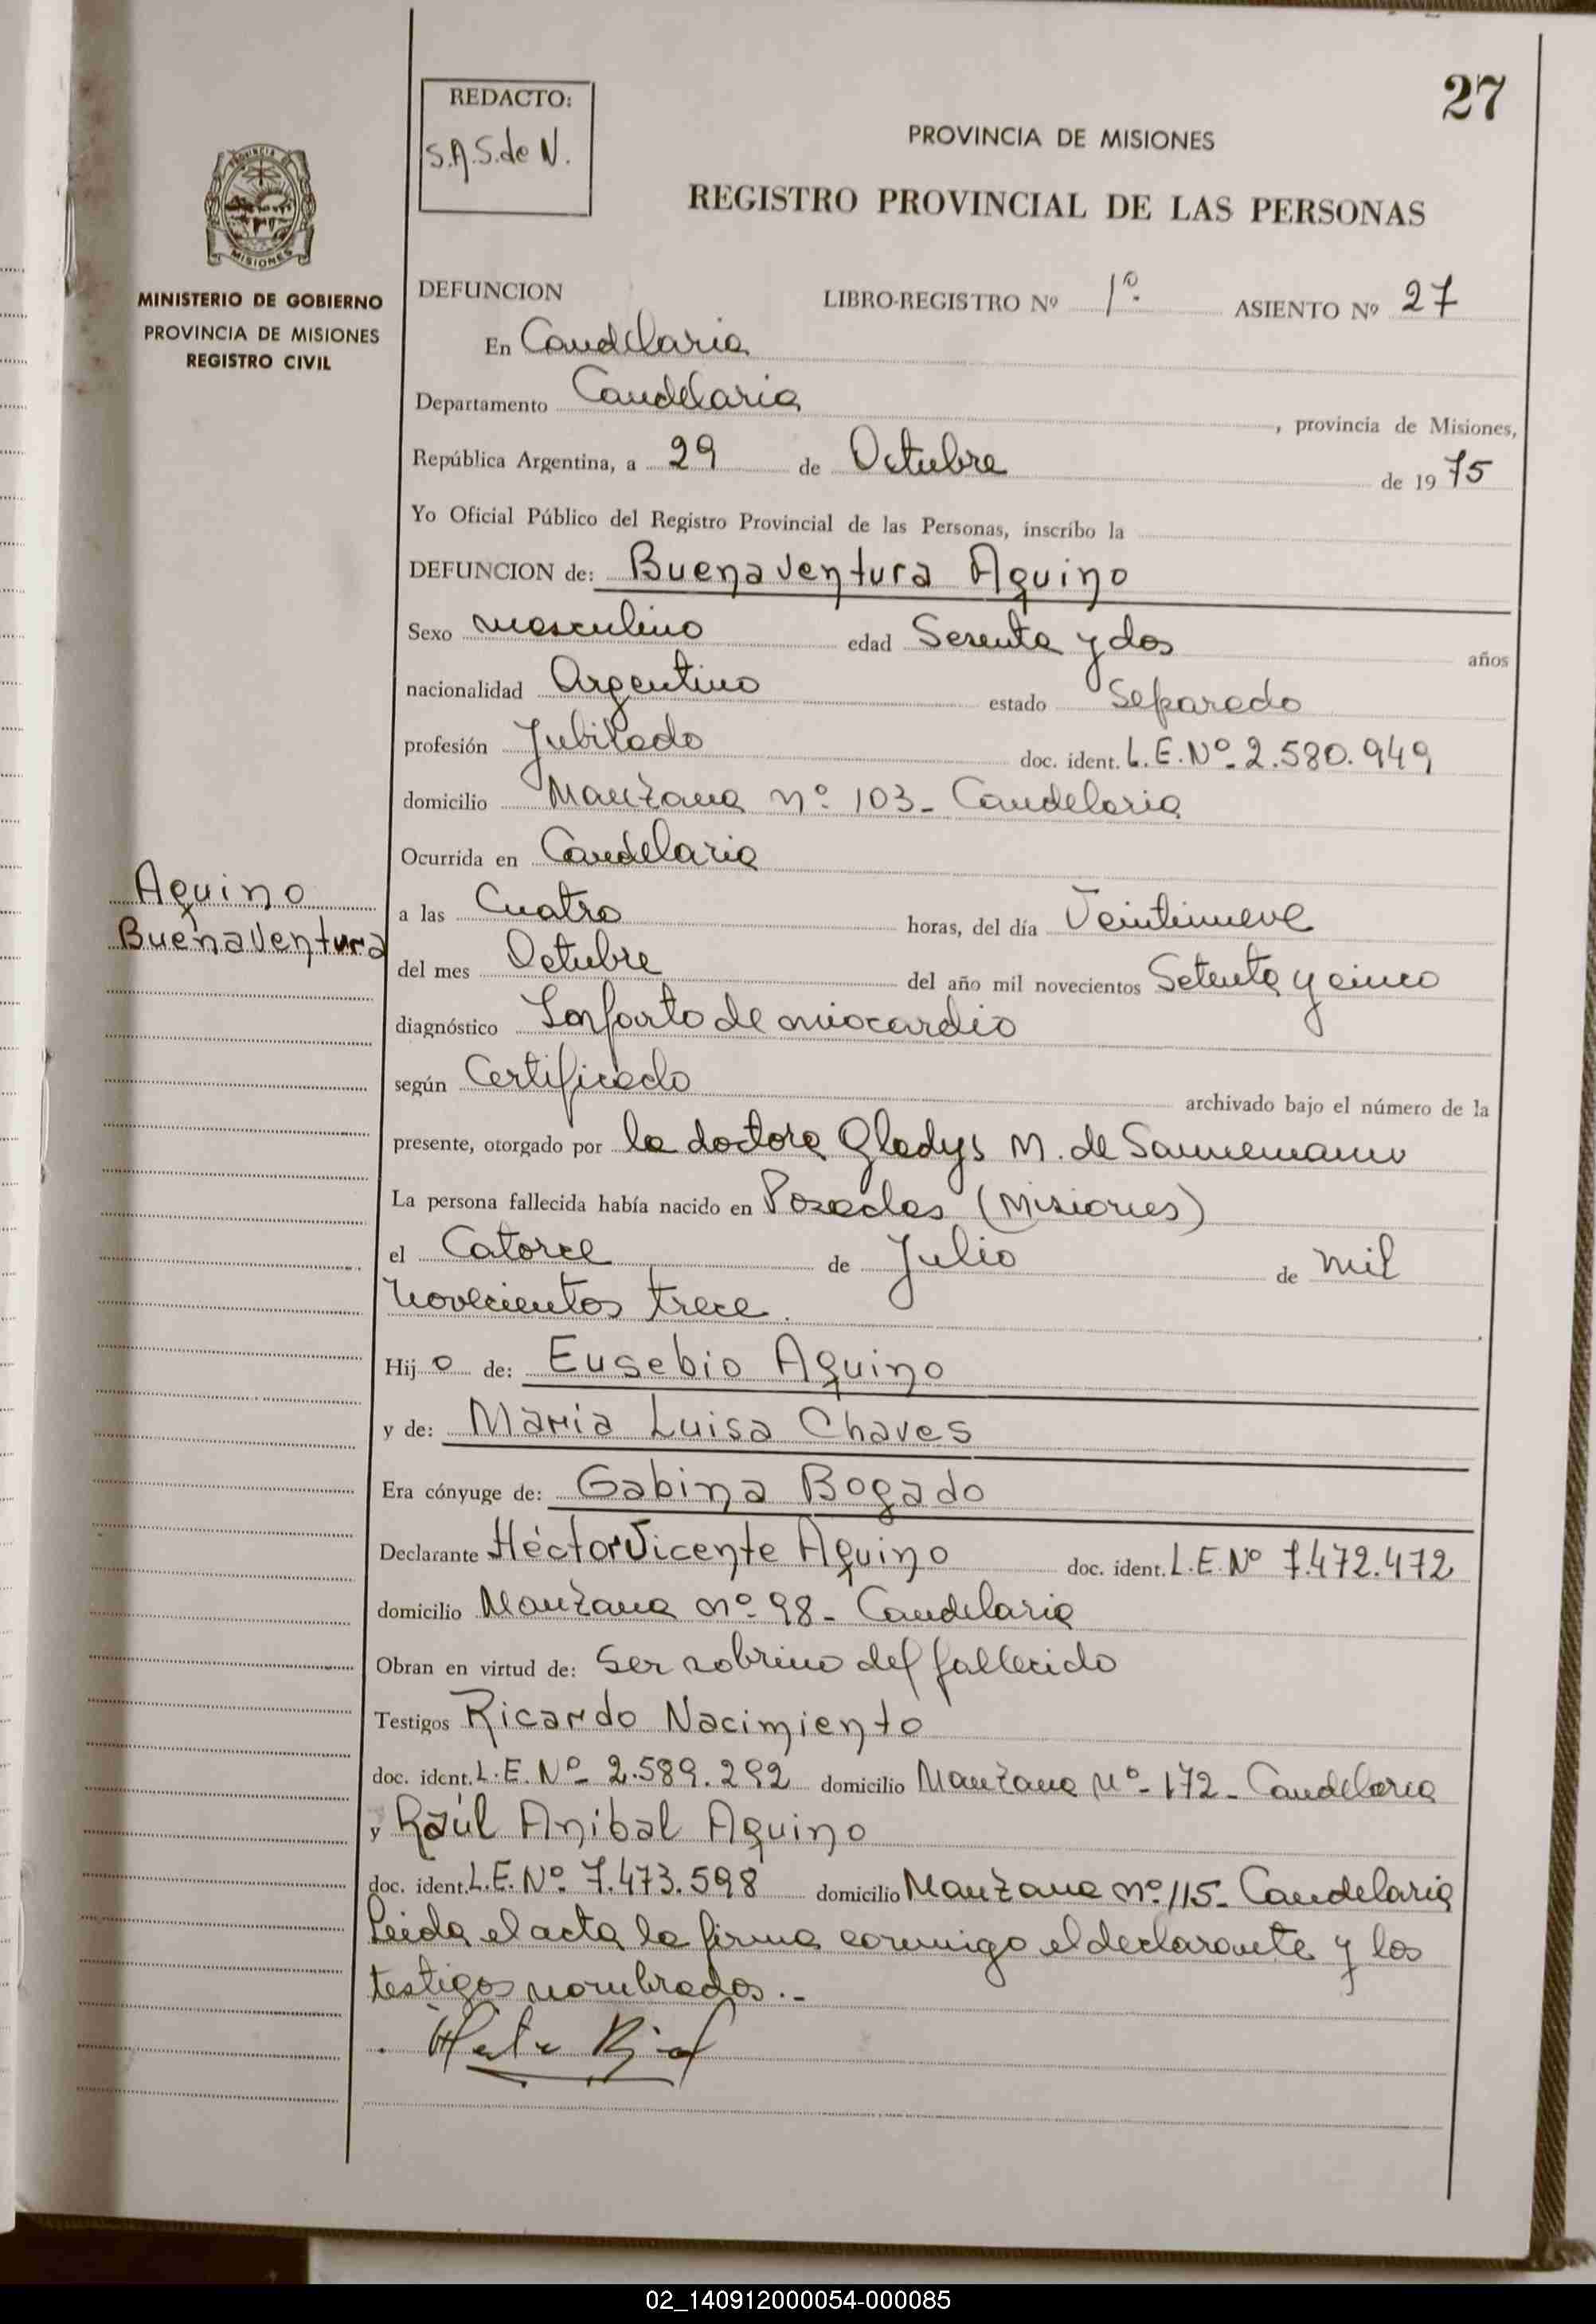 27
REDACTO:
S.A.S.de N.
PROVINCIA DE MISIONES
REGISTRO PROVINCIAL DE LAS PERSONAS
PROVINCIA DE
MISIONES
MINISTERIO DE GOBIERNO
PROVINCIA DE MISIONES
REGISTRO CIVIL
DEFUNCION LIBRO-REGISTRO Nº 1º ASIENTO Nº 27
En Candelaria
Departamento Candelaria, provincia de Misiones,
República Argentina, a 29 de Octubre de 1975
Yo Oficial Público del Registro Provincial de las Personas, inscribo la
DEFUNCION de: Buenaventura Aquino
Sexo masculino edad Sesenta y dos años
nacionalidad Argentino estado Separado
profesión Jubilado doc. ident. L.E.Nº 2.580.949
domicilio Manzana nº 103- Candelaria
Ocurrida en Candelaria
Aquino
Buenaventura
a las Cuatro horas, del día Veintinueve
del mes Octubre del año mil novecientos Setenta y cinco
diagnóstico Infarto de miocardio
según Certificado archivado bajo el número de la
presente, otorgado por la doctora Gladys M. de Sannemann
La persona fallecida había nacido en Posadas (Misiones)
el Catorce de Julio de mil
novecientos trece.
Hijo de: Eusebio Aquino
y de: Maria Luisa Chaves
Era cónyuge de: Gabina Bogado
Declarante Héctor Vicente Aquino doc. ident. L.E.Nº 7.472.472
domicilio Manzana nº 98- Candelaria
Obran en virtud de: Ser sobrino del fallecido
Testigos Ricardo Nacimiento
doc. ident. L.E.Nº 2.589.292 domicilio Manzana Nº 172- Candelaria
y Raúl Anibal Aquino
doc. ident. L.E.Nº 7.473.598 domicilio Manzana nº 115- Candelaria
Leida el acta la firma conmigo el declarante y los
testigos nombrados.-
02_140912000054-000085